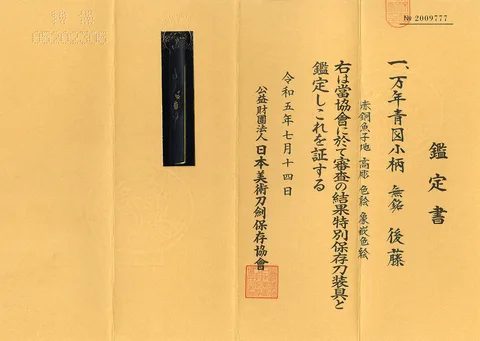 № 2009777
鑑定書
一、万年青図小柄 無銘 後藤
赤銅魚子地 高彫 色絵 象嵌色絵
右は當協會に於て審査の結果特別保存刀装具と
鑑定しこれを証する
令和五年七月十四日
公益財團法人 日本美術刀剣保存協會